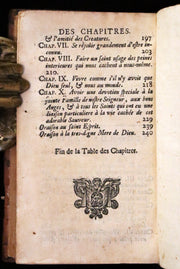 DES CHAPITRES.
& l'amitié des Creatures. 197
CHAP. VII. Se réjoüir grandement d'estre inconnu. 203
CHAP. VIII. Faire un saint usage des peines
interieures qui nous cachent à nous-même.
210.
CHAP. IX. Vivre comme s'il n'y avoit que
Dieu seul, & nous au monde. 218
CHAP. X. Avoir une devotion speciale à la
sainte Famille de nostre Seigneur, aux bons
Anges, & à tous les Saints qui ont eu une
liaison particuliere à la vie cachée de cet
adorable Sauveur. 229
Oraison au saint Esprit. 239
Oraison à la tres-digne Mere de Dieu. 240
Fin de la Table des Chapitres.